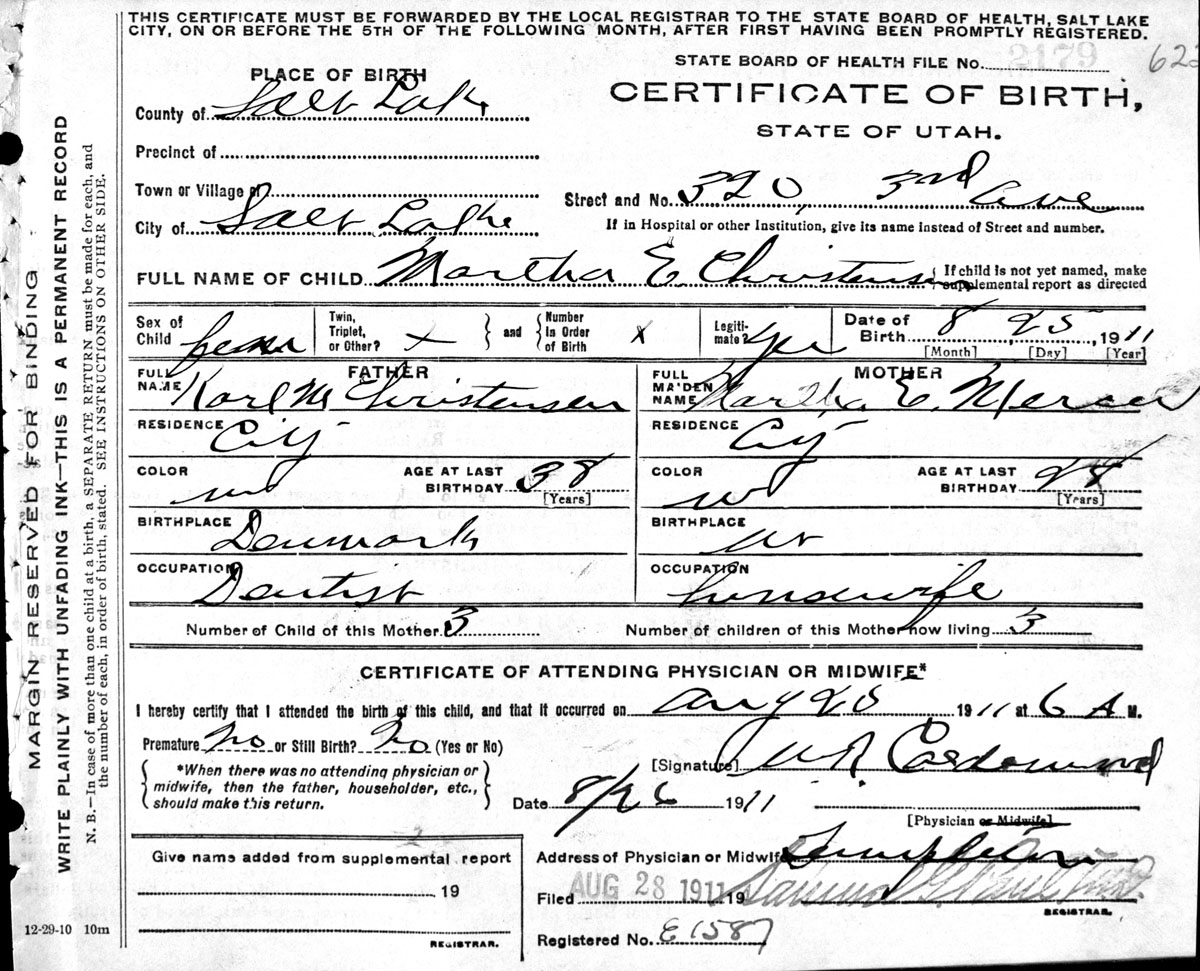 THIS CERTIFICATE MUST BE FORWARDED BY THE LOCAL REGISTRAR TO THE STATE BOARD OF HEALTH, SALT LAKE
CITY, ON OR BEFORE THE 5TH OF THE FOLLOWING MONTH, AFTER FIRST HAVING BEEN PROMPTLY REGISTERED.
STATE BOARD OF HEALTH FILE No. 2179
PLACE OF BIRTH
CERTIFICATE OF BIRTH,
County of Salt Lake
STATE OF UTAH.
Precinct of
Town or Village of
Street and No. 320, 3rd Ave
City of Salt Lake
If in Hospital or other Institution, give its name instead of Street and number.
FULL NAME OF CHILD Martha E. Christensen { If child is not yet named, make
supplemental report as directed
Sex of Child Twin, Triplet, or Other? x } and { Number In Order of Birth x Legiti-mate? yes Date of Birth 8 25, 1911
[Month] [Day] [Year]
FATHER MOTHER
FULL NAME Karl M Christensen FULL MAIDEN NAME Martha E.
RESIDENCE City RESIDENCE City
COLOR w AGE AT LAST BIRTHDAY 38 [Years] COLOR w AGE AT LAST BIRTHDAY [Years]
BIRTHPLACE Denmark BIRTHPLACE Ut
OCCUPATION Dentist OCCUPATION housewife
Number of Child of this Mother. 3 Number of children of this Mother now living 3
CERTIFICATE OF ATTENDING PHYSICIAN OR MIDWIFE*
I hereby certify that I attended the birth of this child, and that it occurred on Aug 25 1911 at 6 A M.
Premature No or Still Birth? No (Yes or No)
*When there was no attending physician or
midwife, then the father, householder, etc.,
should make this return.
[Signature]
Date 8/26 1911
[Physician or Midwife]
Give name added from supplemental report
Address of Physician or Midwife
19
Filed AUG 28 1911 19
REGISTRAR.
12-29-10 10m
REGISTRAR.
Registered No. E1587
MARGIN RESERVED FOR BINDING
WRITE PLAINLY WITH UNFADING INK—THIS IS A PERMANENT RECORD
N. B.—In case of more than one child at a birth, a SEPARATE RETURN must be made for each, and
the number of each, in order of birth, stated. SEE INSTRUCTIONS ON OTHER SIDE.